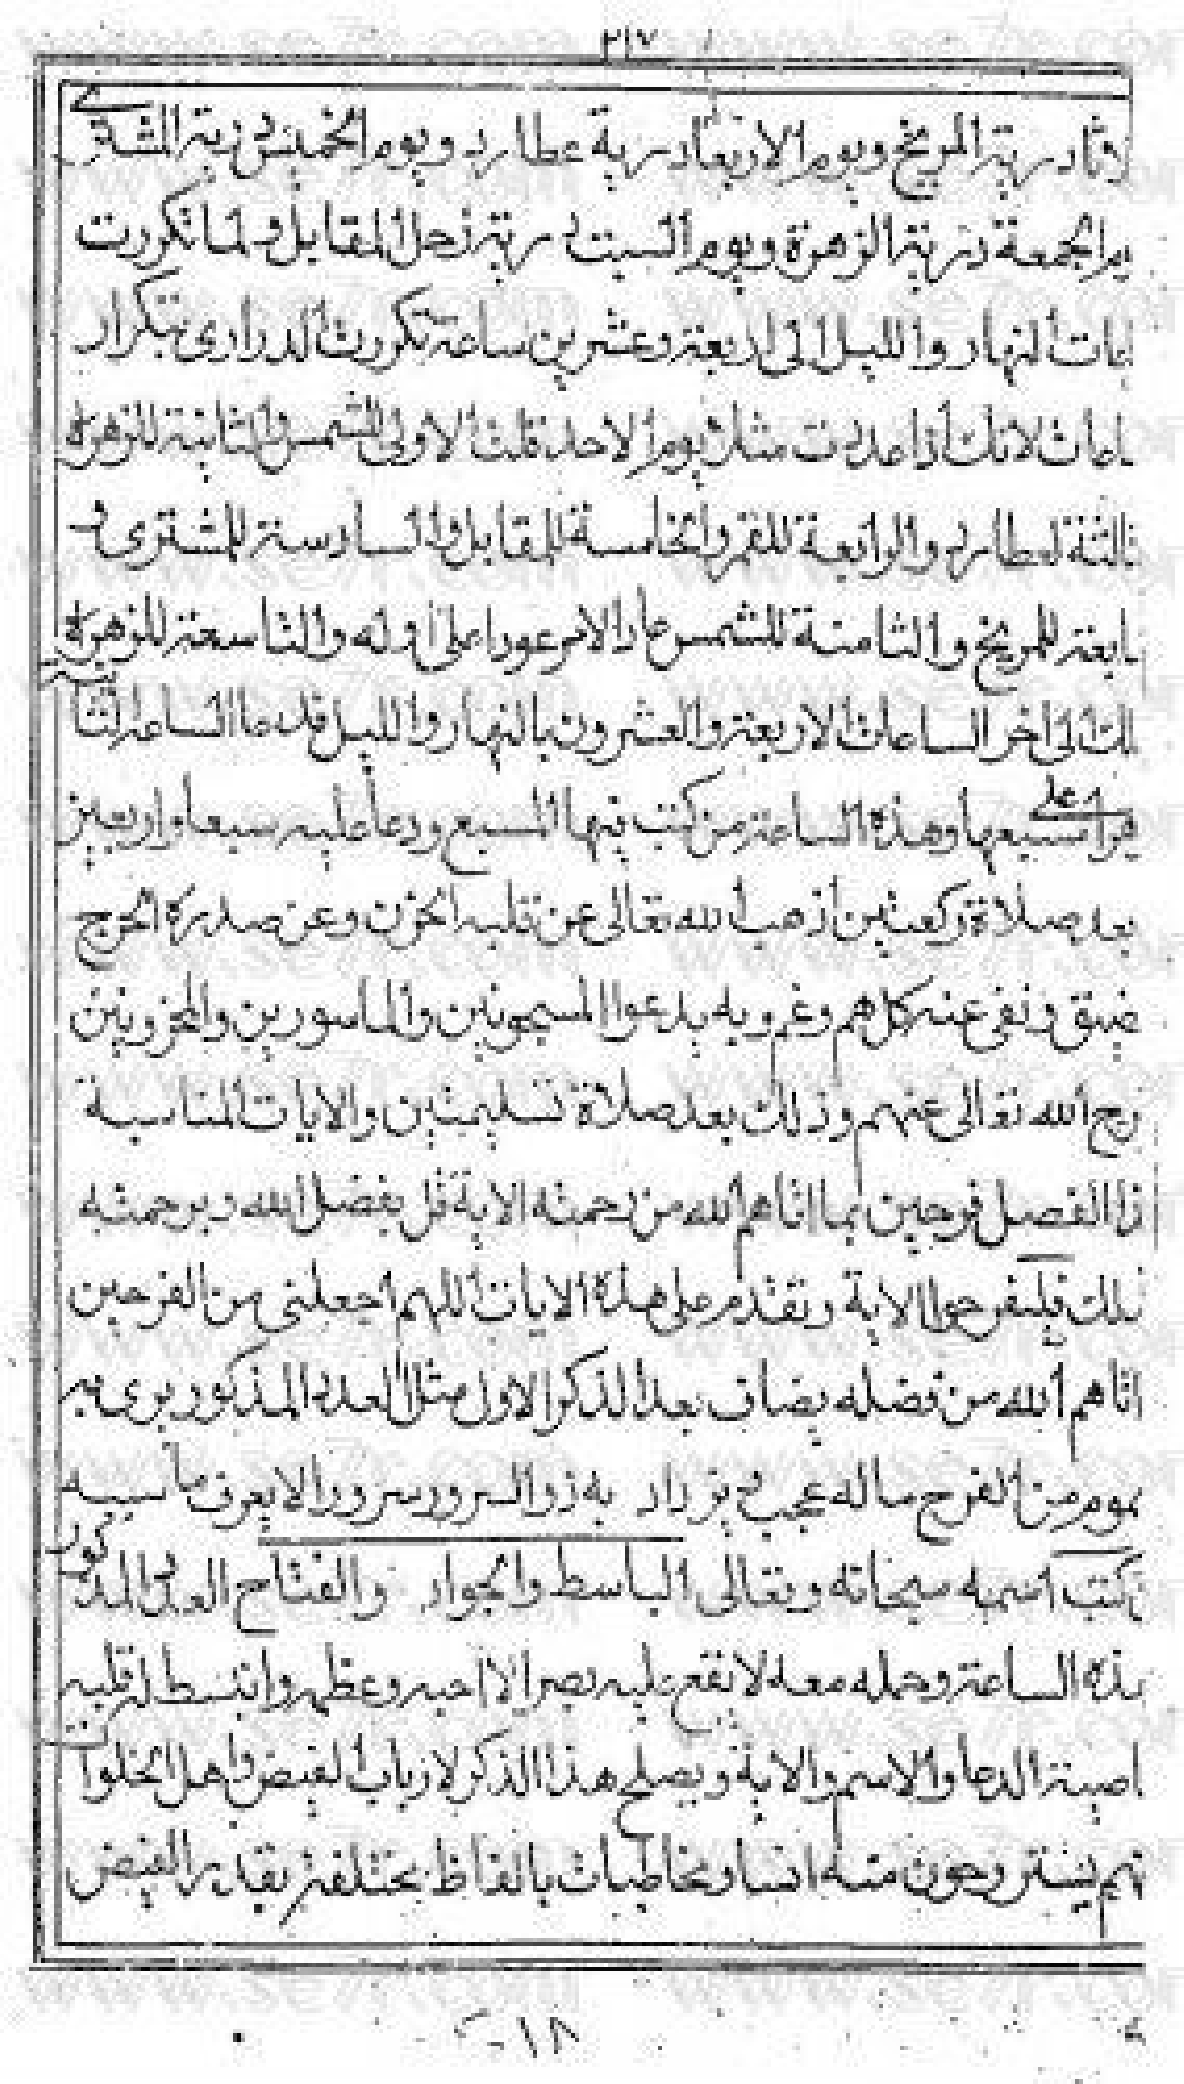 ٢١٧
درية المريخ ويوم الاربعا درية عطارد ويوم الخميس درية المشتري
الجمعة درية الزهرة ويوم السبت درية زحل المقابل ولما تكررت
النهار والليل الى اربعة وعشرين ساعة تكررت الدراري بتكرار
لانك اذا عددت مثلا يوم الاحد قلت الاولى للشمس والثانية للزهرة
لعطارد والرابعة للقمر والخامسة للمقابل والسادسة للمشترى
للمريخ والثامنة للشمس عاد الامر عودا على اوله والتاسعة للزهرة
الى اخر الساعات الاربعة والعشرون بالنهار والليل الساعة
وهذه الساعة من كتب فيها المسبع ودعا عليه سبعا واربعين
بعد صلاة ركعتين اذهب الله تعالى عن قلبه الحزن وعن صدره الحرج
ضيق ونفى عنه كل هم وغم وبه يدعوا المسجونين والماسورين والمحزونين
الله تعالى عنهم وذلك بعد صلاة تسليمتين والايات المناسبة
الفصل فرحين بما اتاهم الله من رحمته الاية قل بفضل الله وبرحمته
فليفرحوا الاية وتقدم على هذه الايات اللهم اجعلنى من الفرحين
اتاهم الله من فضله يضاف بعد الذكر الاول مثل العدد المذكور يرى
من الفرج ماله عجب يزداد به ذو السرور سرورا لا يعرف ما سببه
كتب اسميه سبحانه وتعالى الباسط والجواد والفتاح العدلى المذكور
الساعة وحمله معه لا يقع عليه بصر الا احبه وعظمه وانبسط له قلبه
الدعا والاسم والاية ويصلح هذا الذكر لارباب القبض واهل الخلوات
يستروحون منه انسا ومخاطبات بالفاظ مختلفة بقدر القبض